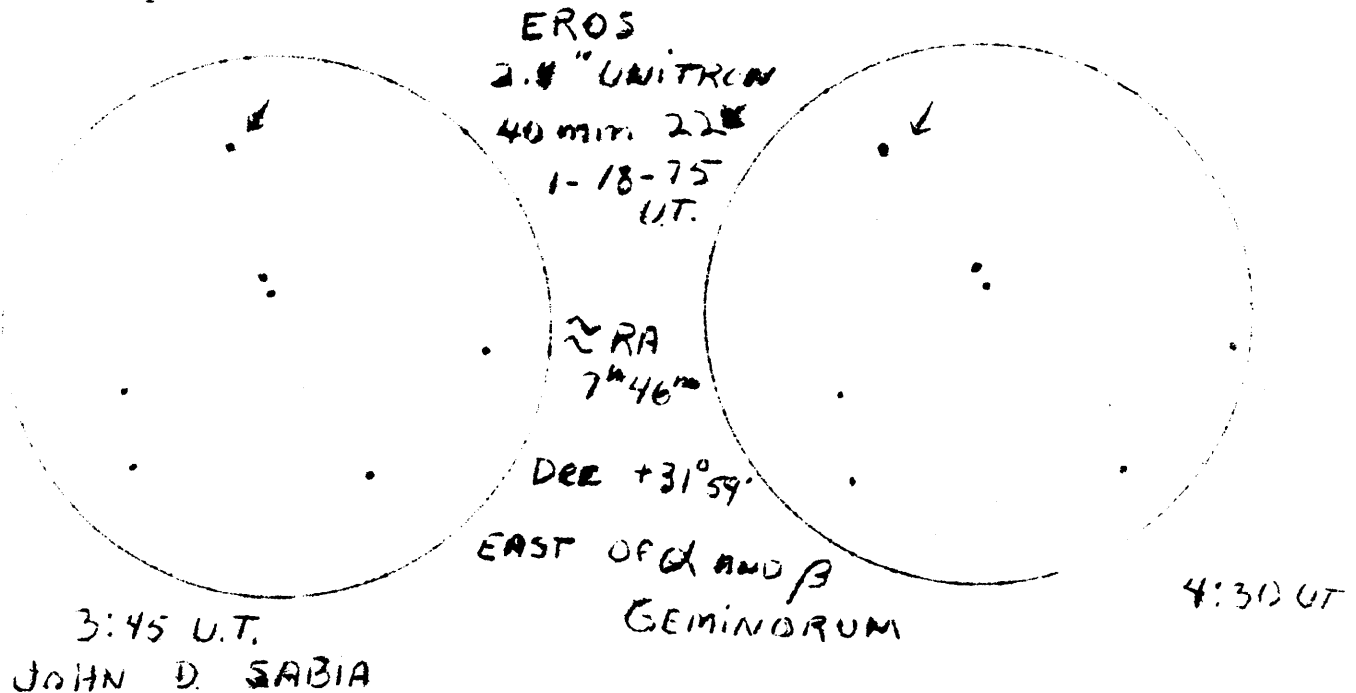 EROS
2.4" UNITRON
40 mm 22X
1-18-75
U.T.
≈ RA
7h 46m
Dec +31° 59'
EAST OF α AND β
GEMINORUM
3:45 U.T.
4:30 UT
JOHN D. SABIA